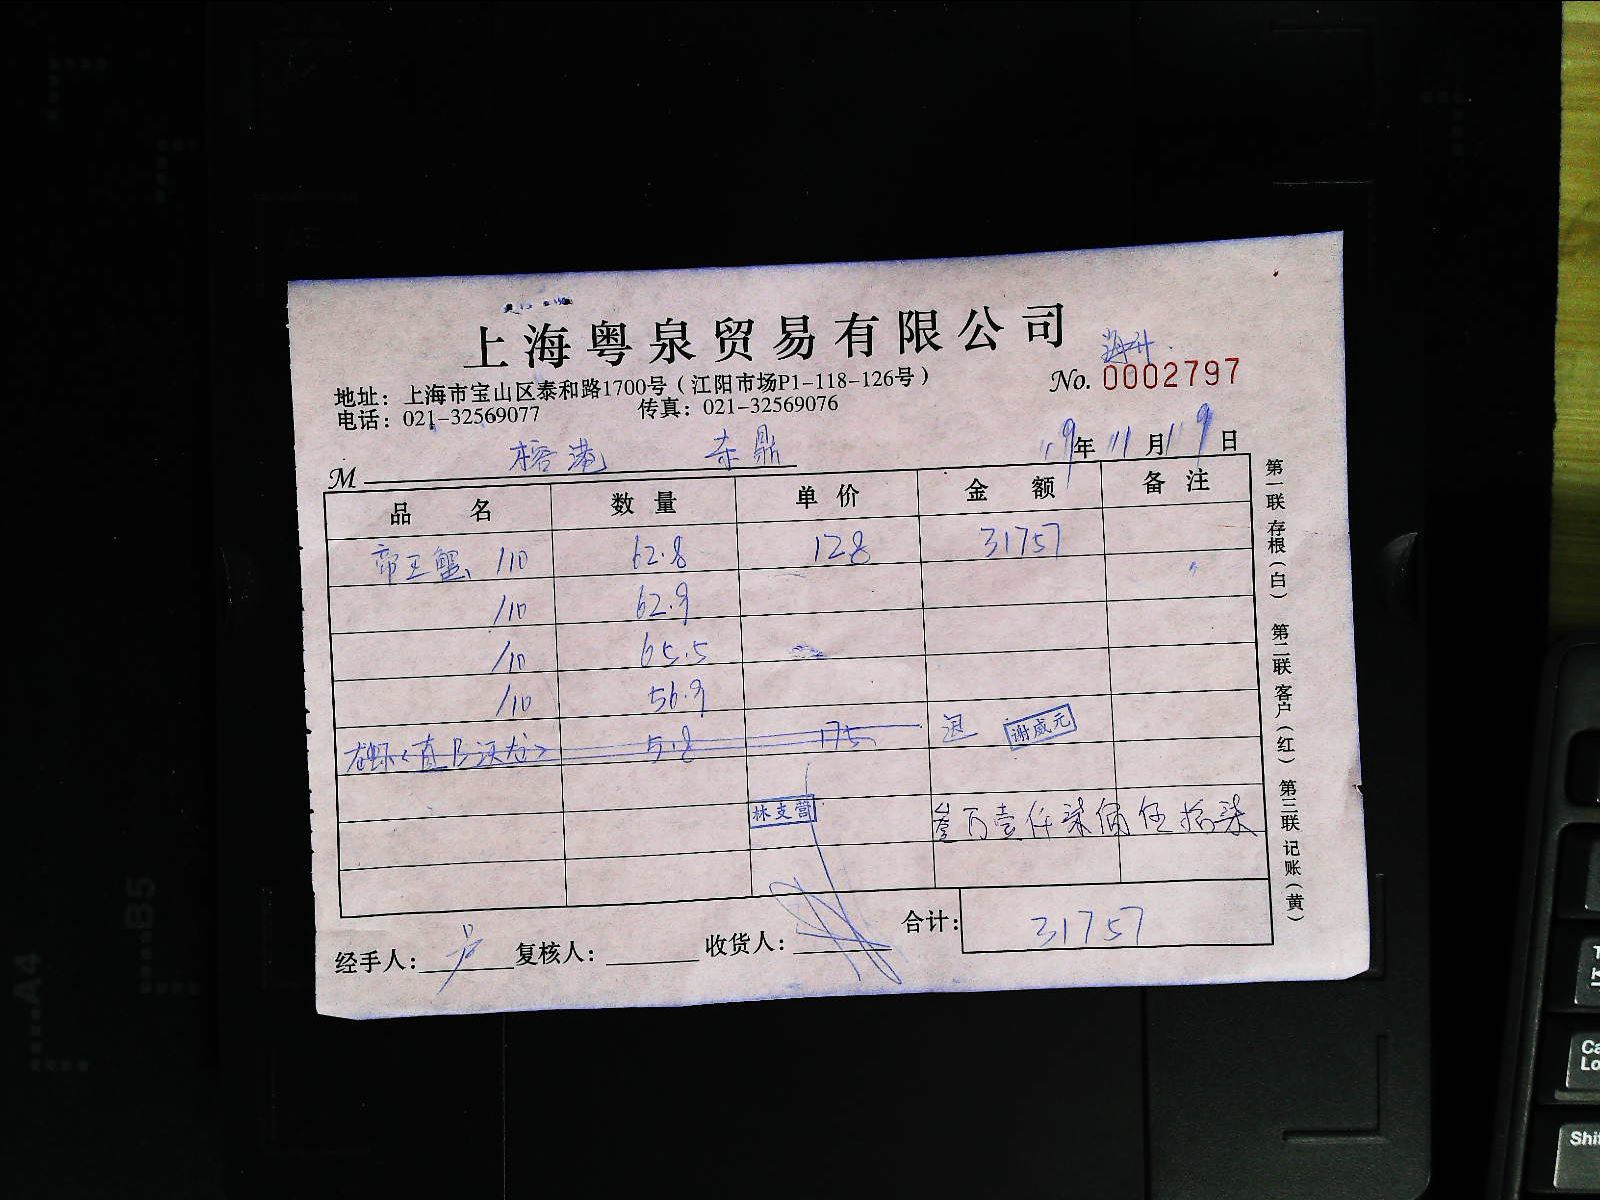 上海粤泉贸易有限公司
海升
地址：上海市宝山区泰和路1700号（江阳市场P1-118-126号）
No. 0002797
电话：021-32569077 传真：021-32569076
M 榕港 东鼎 19年11月19日
品名 数量 单价 金额 备注
帝王蟹 /10 62.8 128 31757
/10 62.9
/10 65.5
/10 56.9
龙虾 5.8 175 退 谢威元
林支营 叁万壹仟柒佰伍拾柒
合计： 31757
经手人： 卢 复核人： 收货人：
第一联 存根（白） 第二联 客户（红） 第三联 记账（黄）
B5
A4
Shi